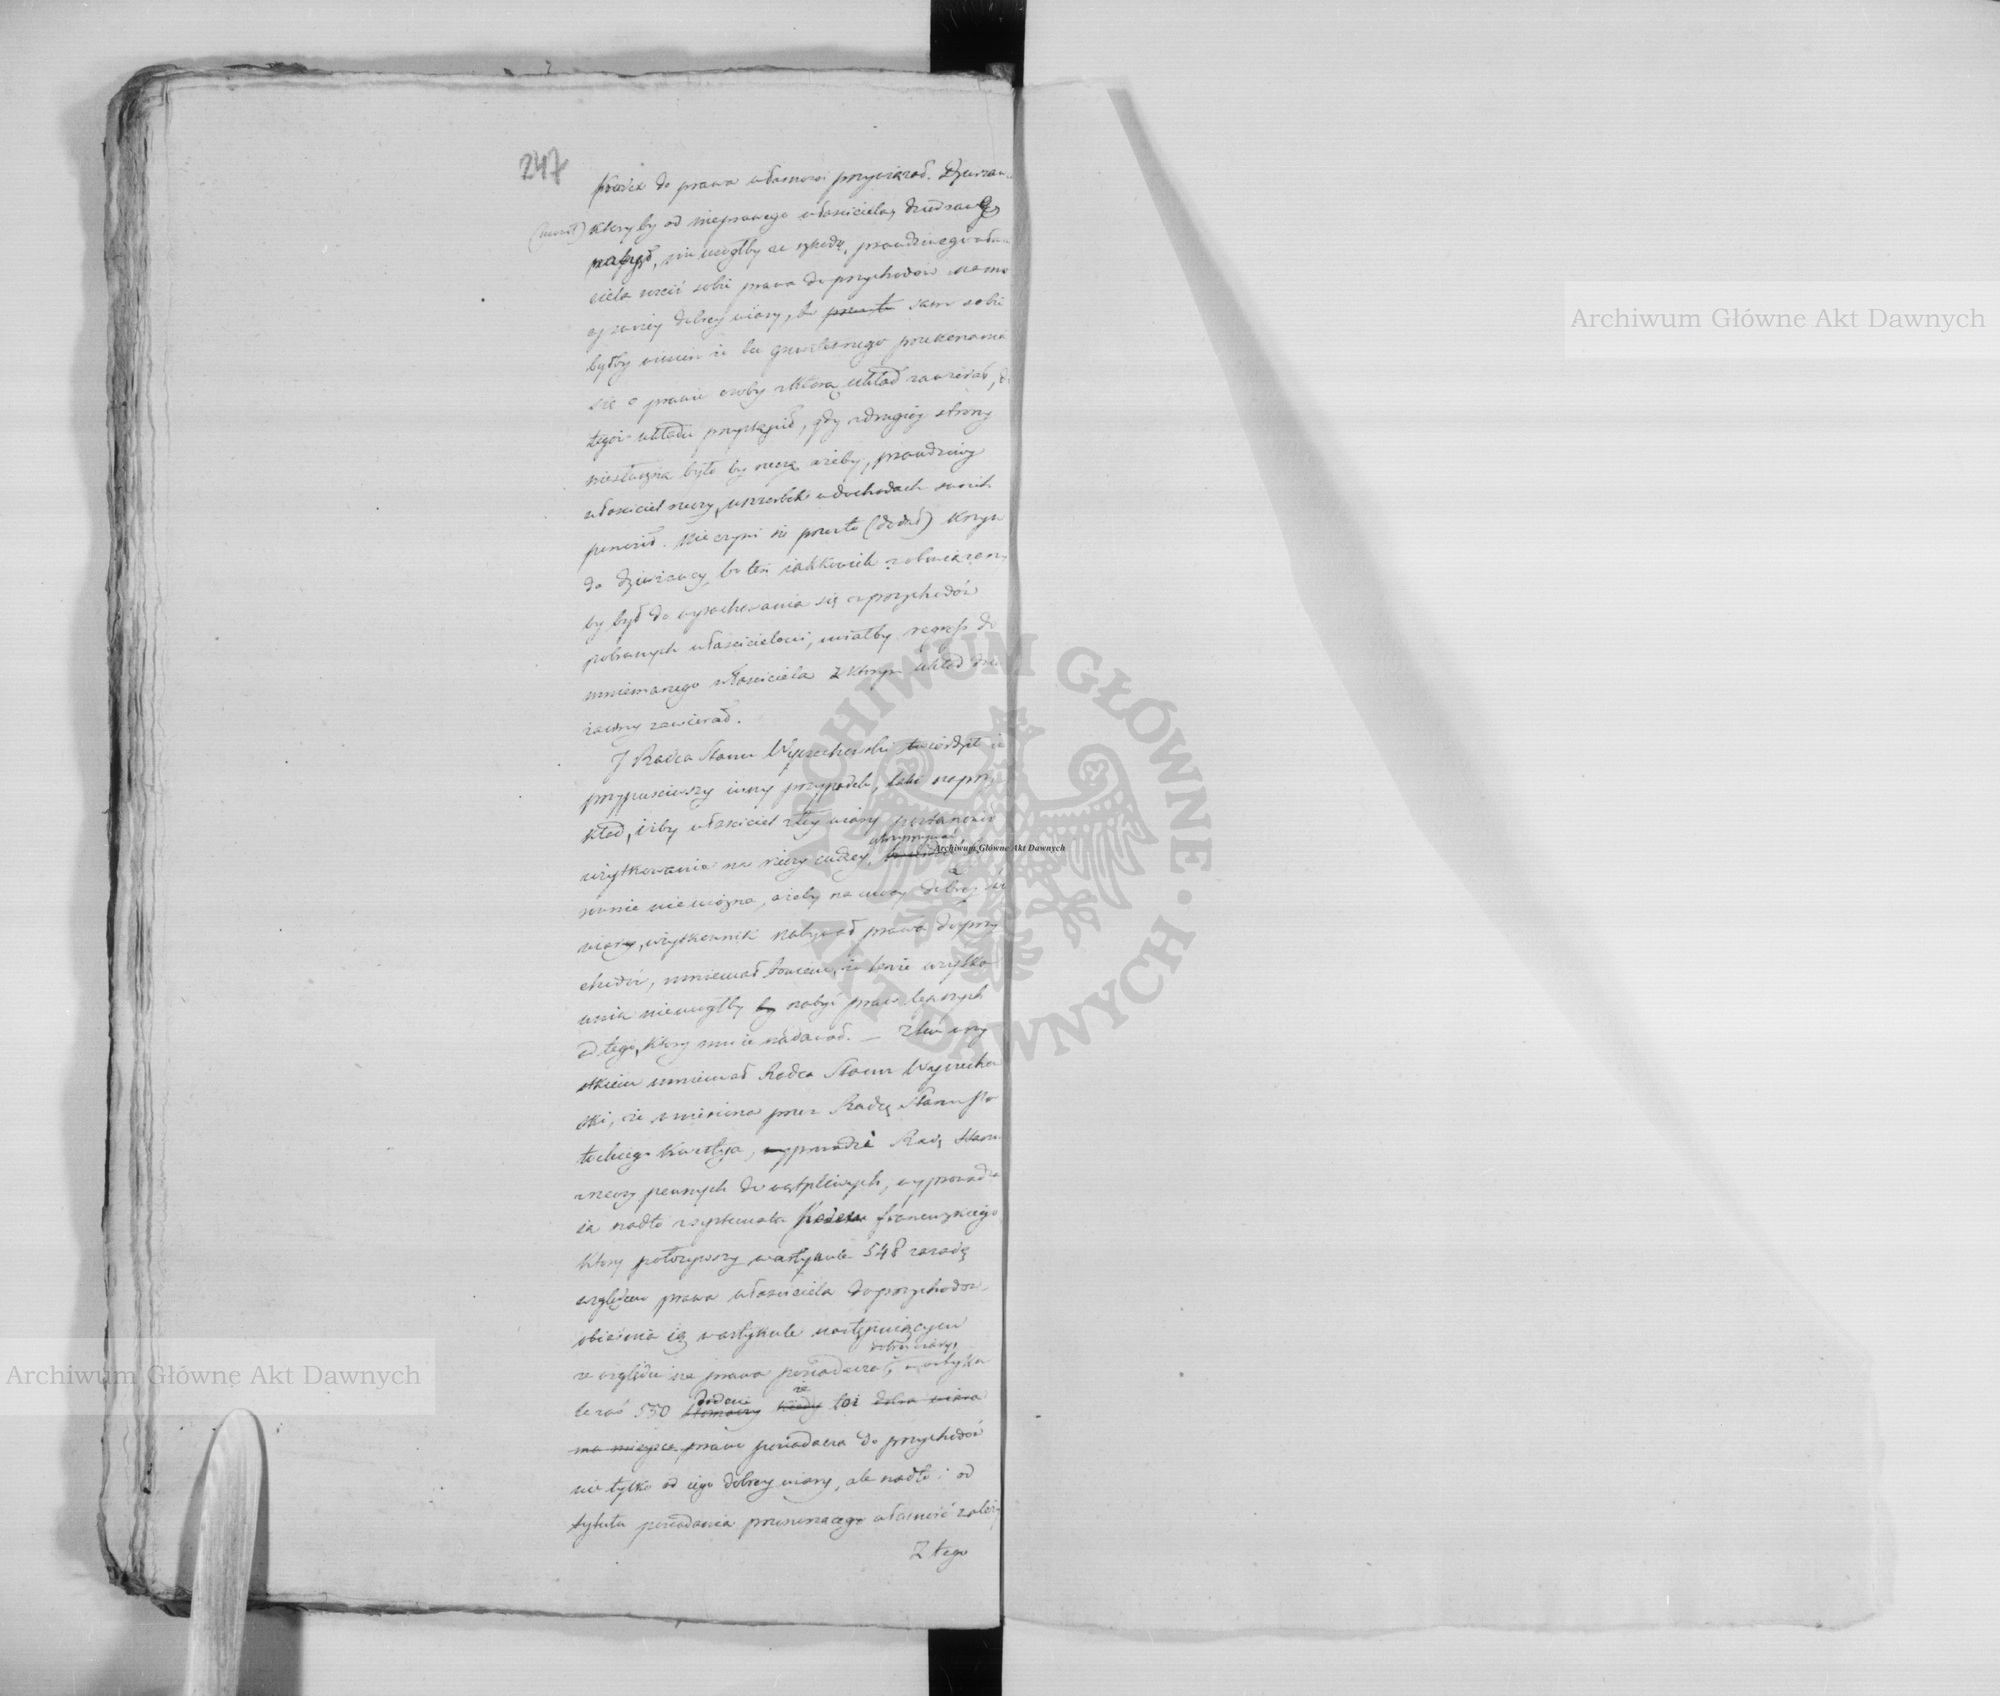 247
kodex do prawa własności przywiązał. Dzierzawca
(mówił) któryby od nieprawego właściciela, dzierzawę
nabył, nie mógłby ze szkodą, prawdziwego właści
ciela rościć sobie prawa do przychodów na mo
cy swoiey dobrey wiary, bo przeto sam sobie
byłby winien że bez gruntownego przekonania
się o prawie osoby z którą układ zawierał, do
tegoż układu przystąpił, gdy z drugiey strony
niesłuszną było by rzeczą ażeby, prawdziwy
właściciel rzeczy, uszczerbek w dochodach swoich
ponosił. Nie czyni się przeto (dodał) krzyw
da dzierżawcy, bo ten iakkolwiek zobowiązany
by był do wyrachowania się z przychodów
pobranych właścicielowi, miałby regress do
mniemanego właściciela z którym układ dzier
żawny zawierał.
J Radca Stanu Wyczechowski twierdził że
przypuściwszy inny przypadek, iako naprzy
kład, iżby właściciel złey wiary postanowił
użytkowanie na rzeczy cudzey, utrzymywać
równie nie można, ażeby na mocy dobrey swey
wiary, użytkownik nabywał prawa do przy
chodów, mniemał bowiem, że tenże użytko
wnik nie mógłby by nabyć praw lepszych
od tego, który mu ie nadawał. — Z tem wszy
stkiem mniemał Radca Stanu Wyczechow
ski, że wniesiona przez Radcę Stanu Po
tockiego kwestya, wyprowadzi Radę Stanu
z rzeczy pewnych do wątpliwych, wyprowadza
ią nadto z systematu kodexu francuzkiego
który położywszy w artykule 548 zasadę
względem prawa właściciela do przychodów,
obiaśnia ią w artykule następuiącym
ze względu na prawa posiadacza dobrey wiary, w artyku
le zaś 550 dodaie tłomaczy kiedy że toż dobra wiara
ma miejsce prawo posiadacza do przychodów
nie tylko od iego dobrey wiary, ale nadto i od
tytułu posiadania przenoszącego własność zależy
Z tego
Archiwum Główne Akt Dawnych
Archiwum Główne Akt Dawnych
Archiwum Główne Akt Dawnych
ARCHIWUM GŁÓWNE · AKT DAWNYCH ·